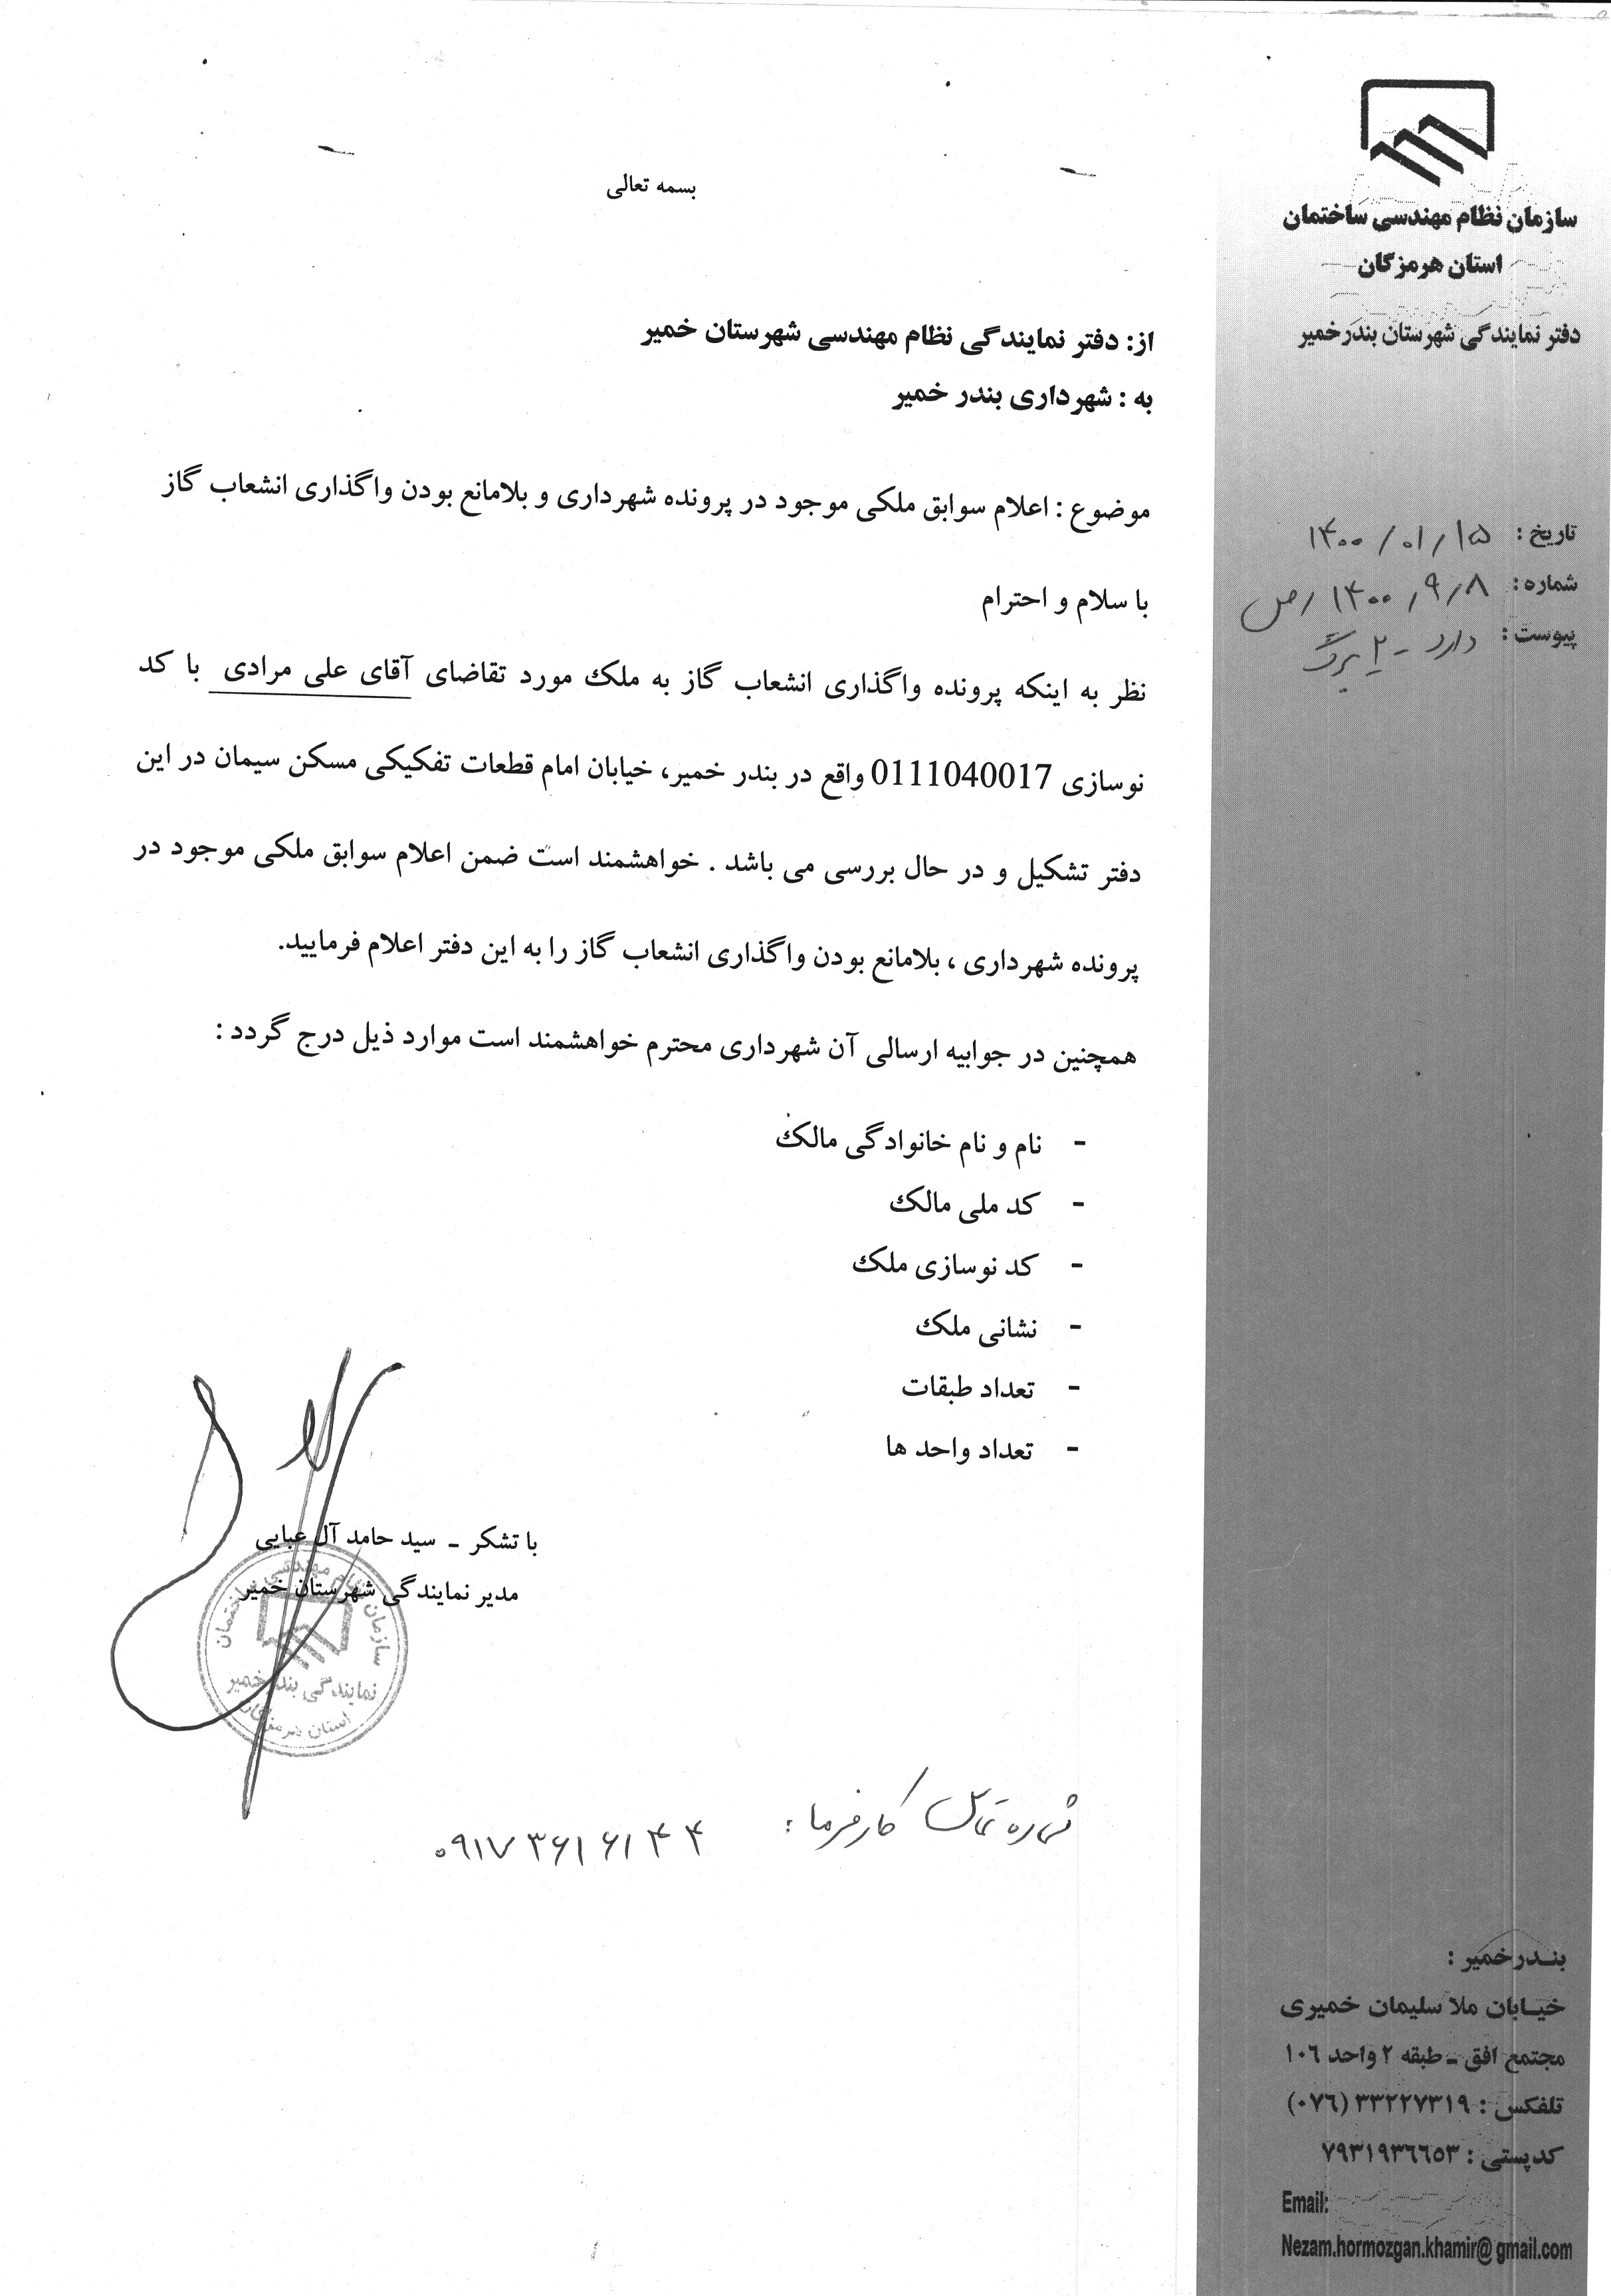 سازمان نظام مهندسی ساختمان
استان هرمزگان
دفتر نمایندگی شهرستان بندرخمیر
تاریخ : ۱۴۰۰/۰۱/۱۵
شماره : ۱۴۰۰/۹/۸/ص
پیوست : دارد - ۲ برگ
بسمه تعالی
از: دفتر نمایندگی نظام مهندسی شهرستان خمیر
به : شهرداری بندر خمیر
موضوع : اعلام سوابق ملکی موجود در پرونده شهرداری و بلامانع بودن واگذاری انشعاب گاز
با سلام و احترام
نظر به اینکه پرونده واگذاری انشعاب گاز به ملک مورد تقاضای آقای علی مرادی با کد
نوسازی 0111040017 واقع در بندر خمیر، خیابان امام قطعات تفکیکی مسکن سیمان در این
دفتر تشکیل و در حال بررسی می باشد . خواهشمند است ضمن اعلام سوابق ملکی موجود در
پرونده شهرداری ، بلامانع بودن واگذاری انشعاب گاز را به این دفتر اعلام فرمایید.
همچنین در جوابیه ارسالی آن شهرداری محترم خواهشمند است موارد ذیل درج گردد :
- نام و نام خانوادگی مالک
- کد ملی مالک
- کد نوسازی ملک
- نشانی ملک
- تعداد طبقات
- تعداد واحد ها
با تشکر - سید حامد آل عبایی
مدیر نمایندگی شهرستان خمیر
سازمان نظام مهندسی ساختمان
نمایندگی بندر خمیر
استان هرمزگان
شماره تماس کارفرما : ۰۹۱۷۳۶۱۶۱۴۴
بندرخمیر :
خیابان ملا سلیمان خمیری
مجتمع افق - طبقه ۲ واحد ۱۰۶
تلفکس : ۳۳۲۲۷۳۱۹ (۰۷۶)
کدپستی : ۷۹۳۱۹۳۶۶۵۳
Email:
Nezam.hormozgan.khamir@gmail.com